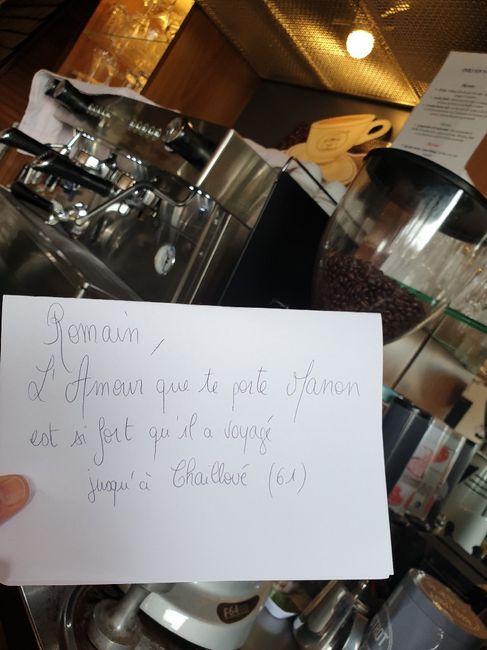 Romain,
L'Amour que te porte Manon
est si fort qu'il a voyagé
jusqu'à Chailloué (61)
F64